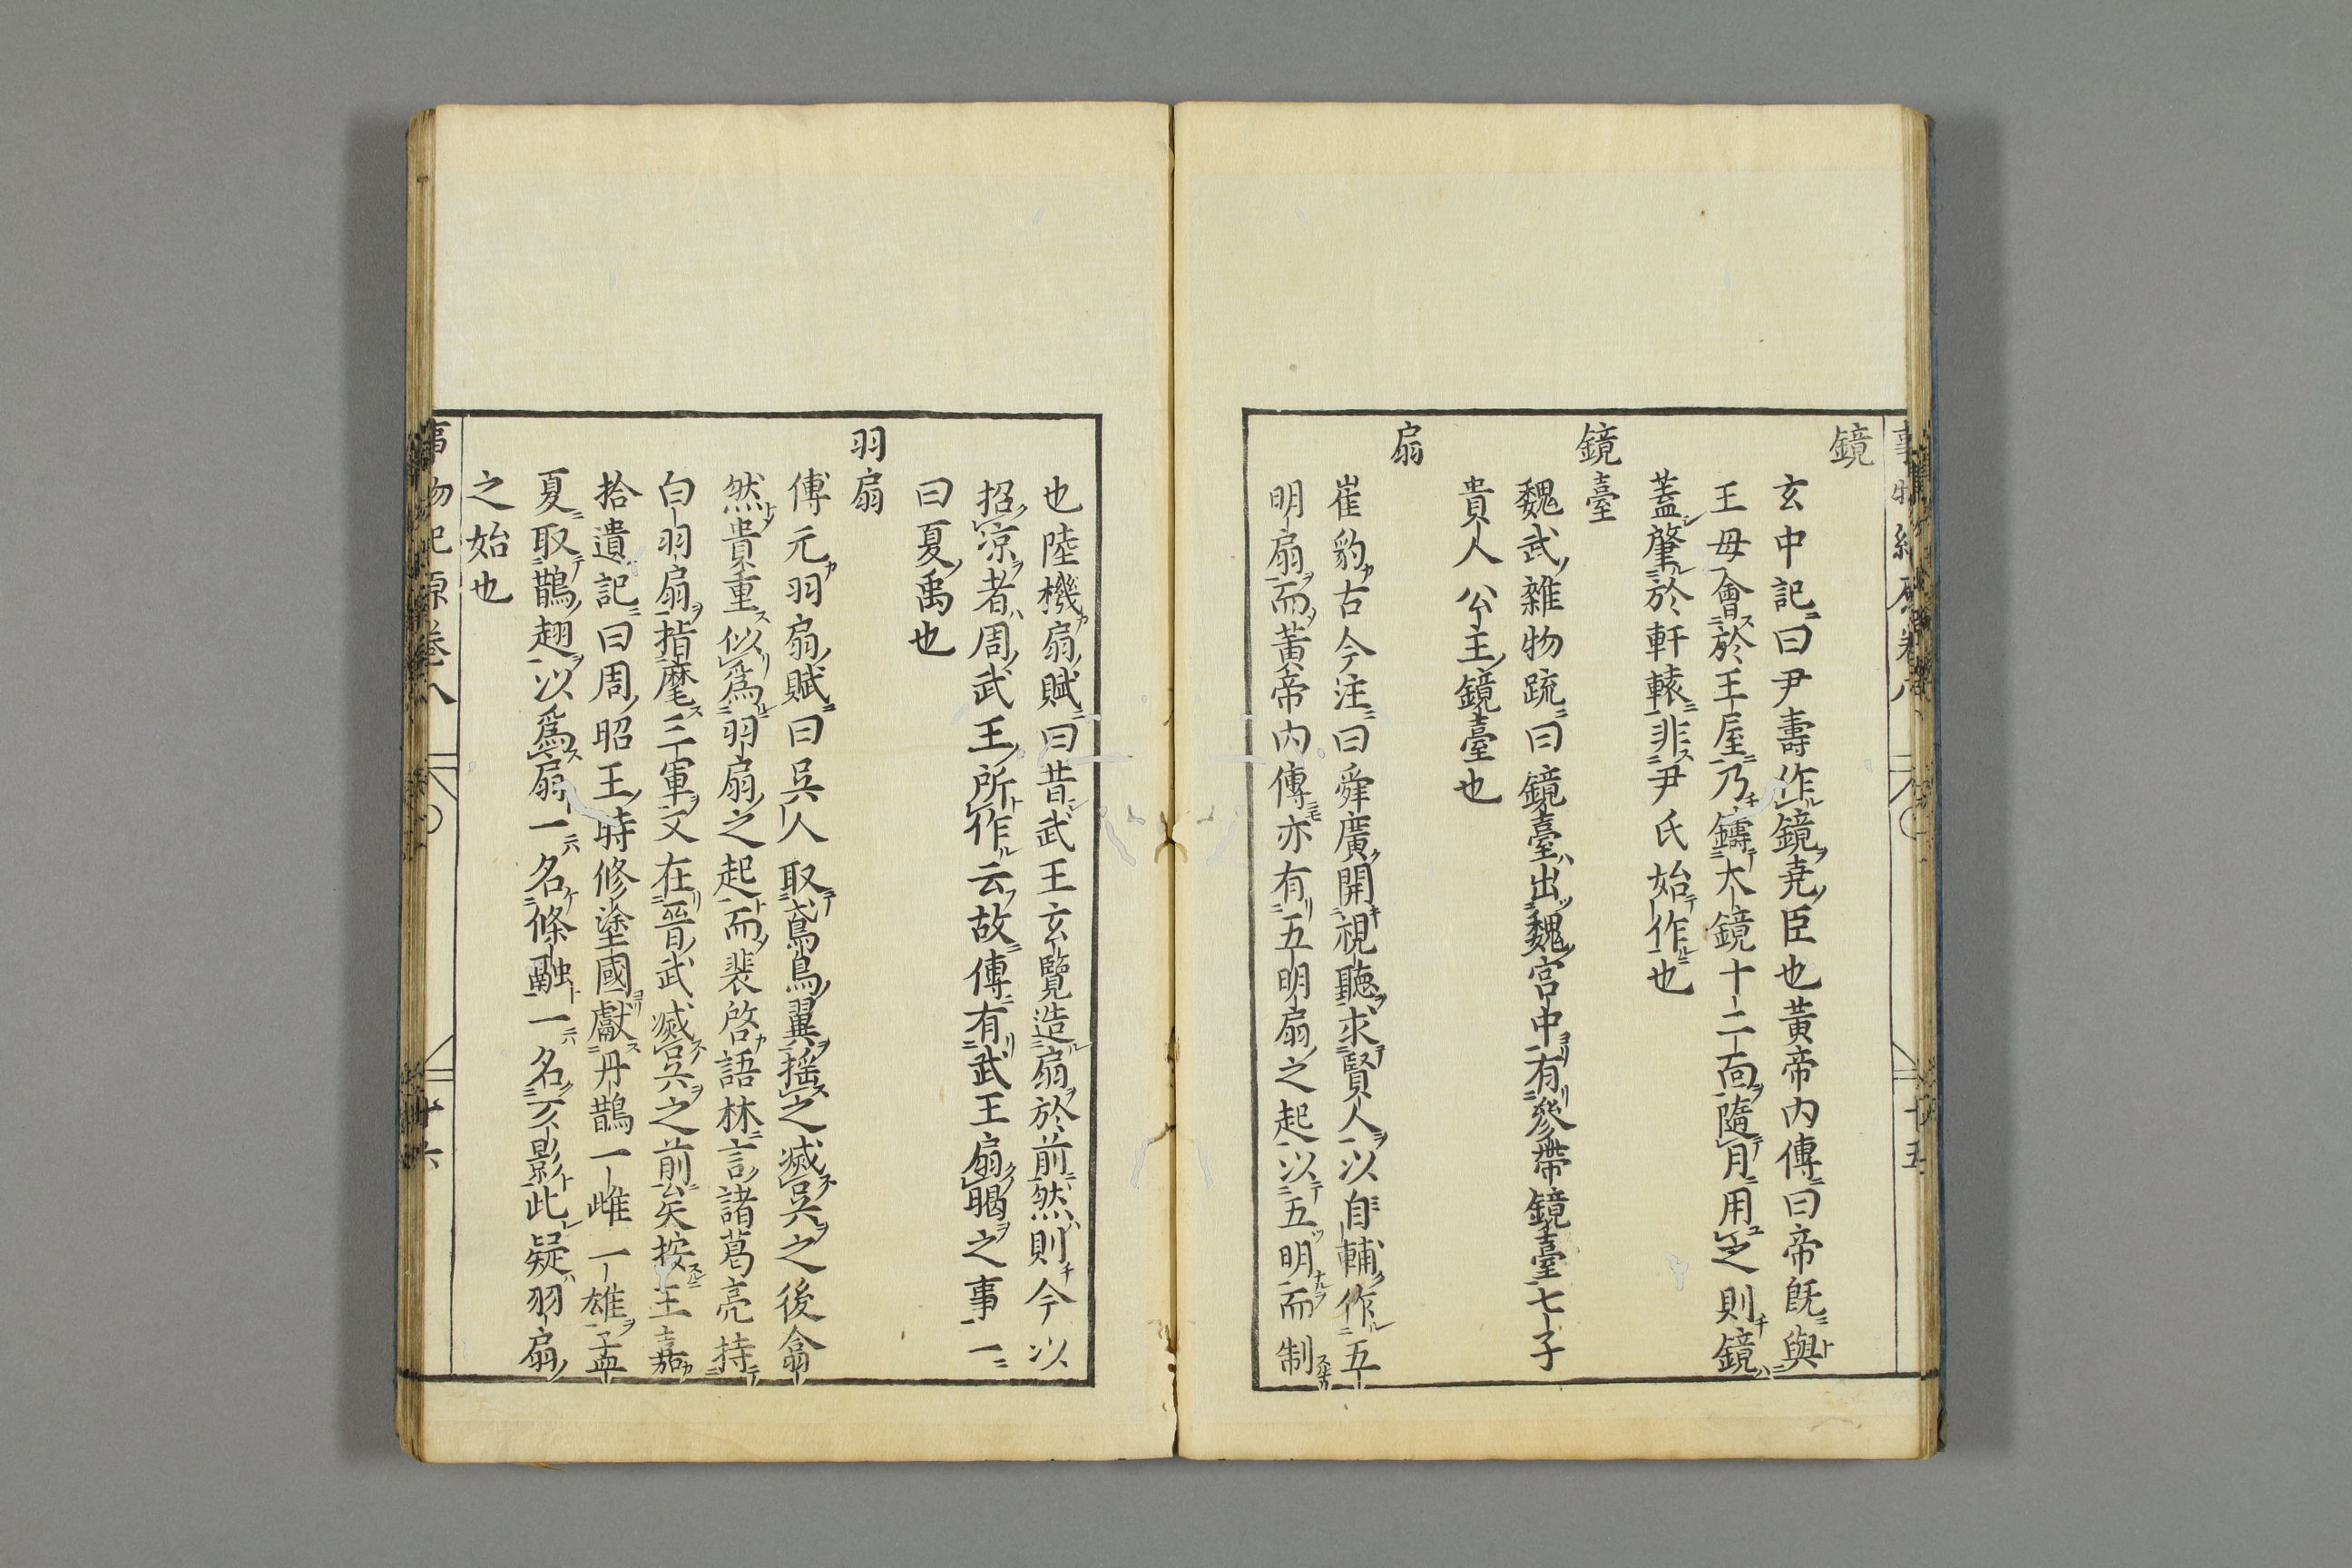 鏡
玄中記曰尹壽作鏡堯臣也黃帝內傳曰帝既與
王母會於王屋乃鑄大鏡十二面隨月用之則鏡
蓋肇於軒轅非尹氏始作也
鏡臺
魏武雜物疏曰鏡臺出魏宮中有參帶鏡臺七子
貴人公主鏡臺也
扇
崔豹古今注曰舜廣開視聽求賢人以自輔作五
明扇而黃帝內傳亦有五明扇之起以五明而制
也陸機扇賦曰昔武王玄覽造扇於前然則今以
招凉者周武王所作云故傳有武王扇暍之事一
曰夏禹也
羽扇
傅元羽扇賦曰吳人取鳶鳥翼搖之滅吳之後翕
然貴重似爲羽扇之起而裴啓語林言諸葛亮持
白羽扇指麾三軍又在晉武滅吳之前矣按王嘉
拾遺記曰周昭王時修塗國獻丹鵲一雌一雄孟
夏取鵲翅以爲扇一名條融一名亥影此疑羽扇
之始也
事物紀原卷八
十六